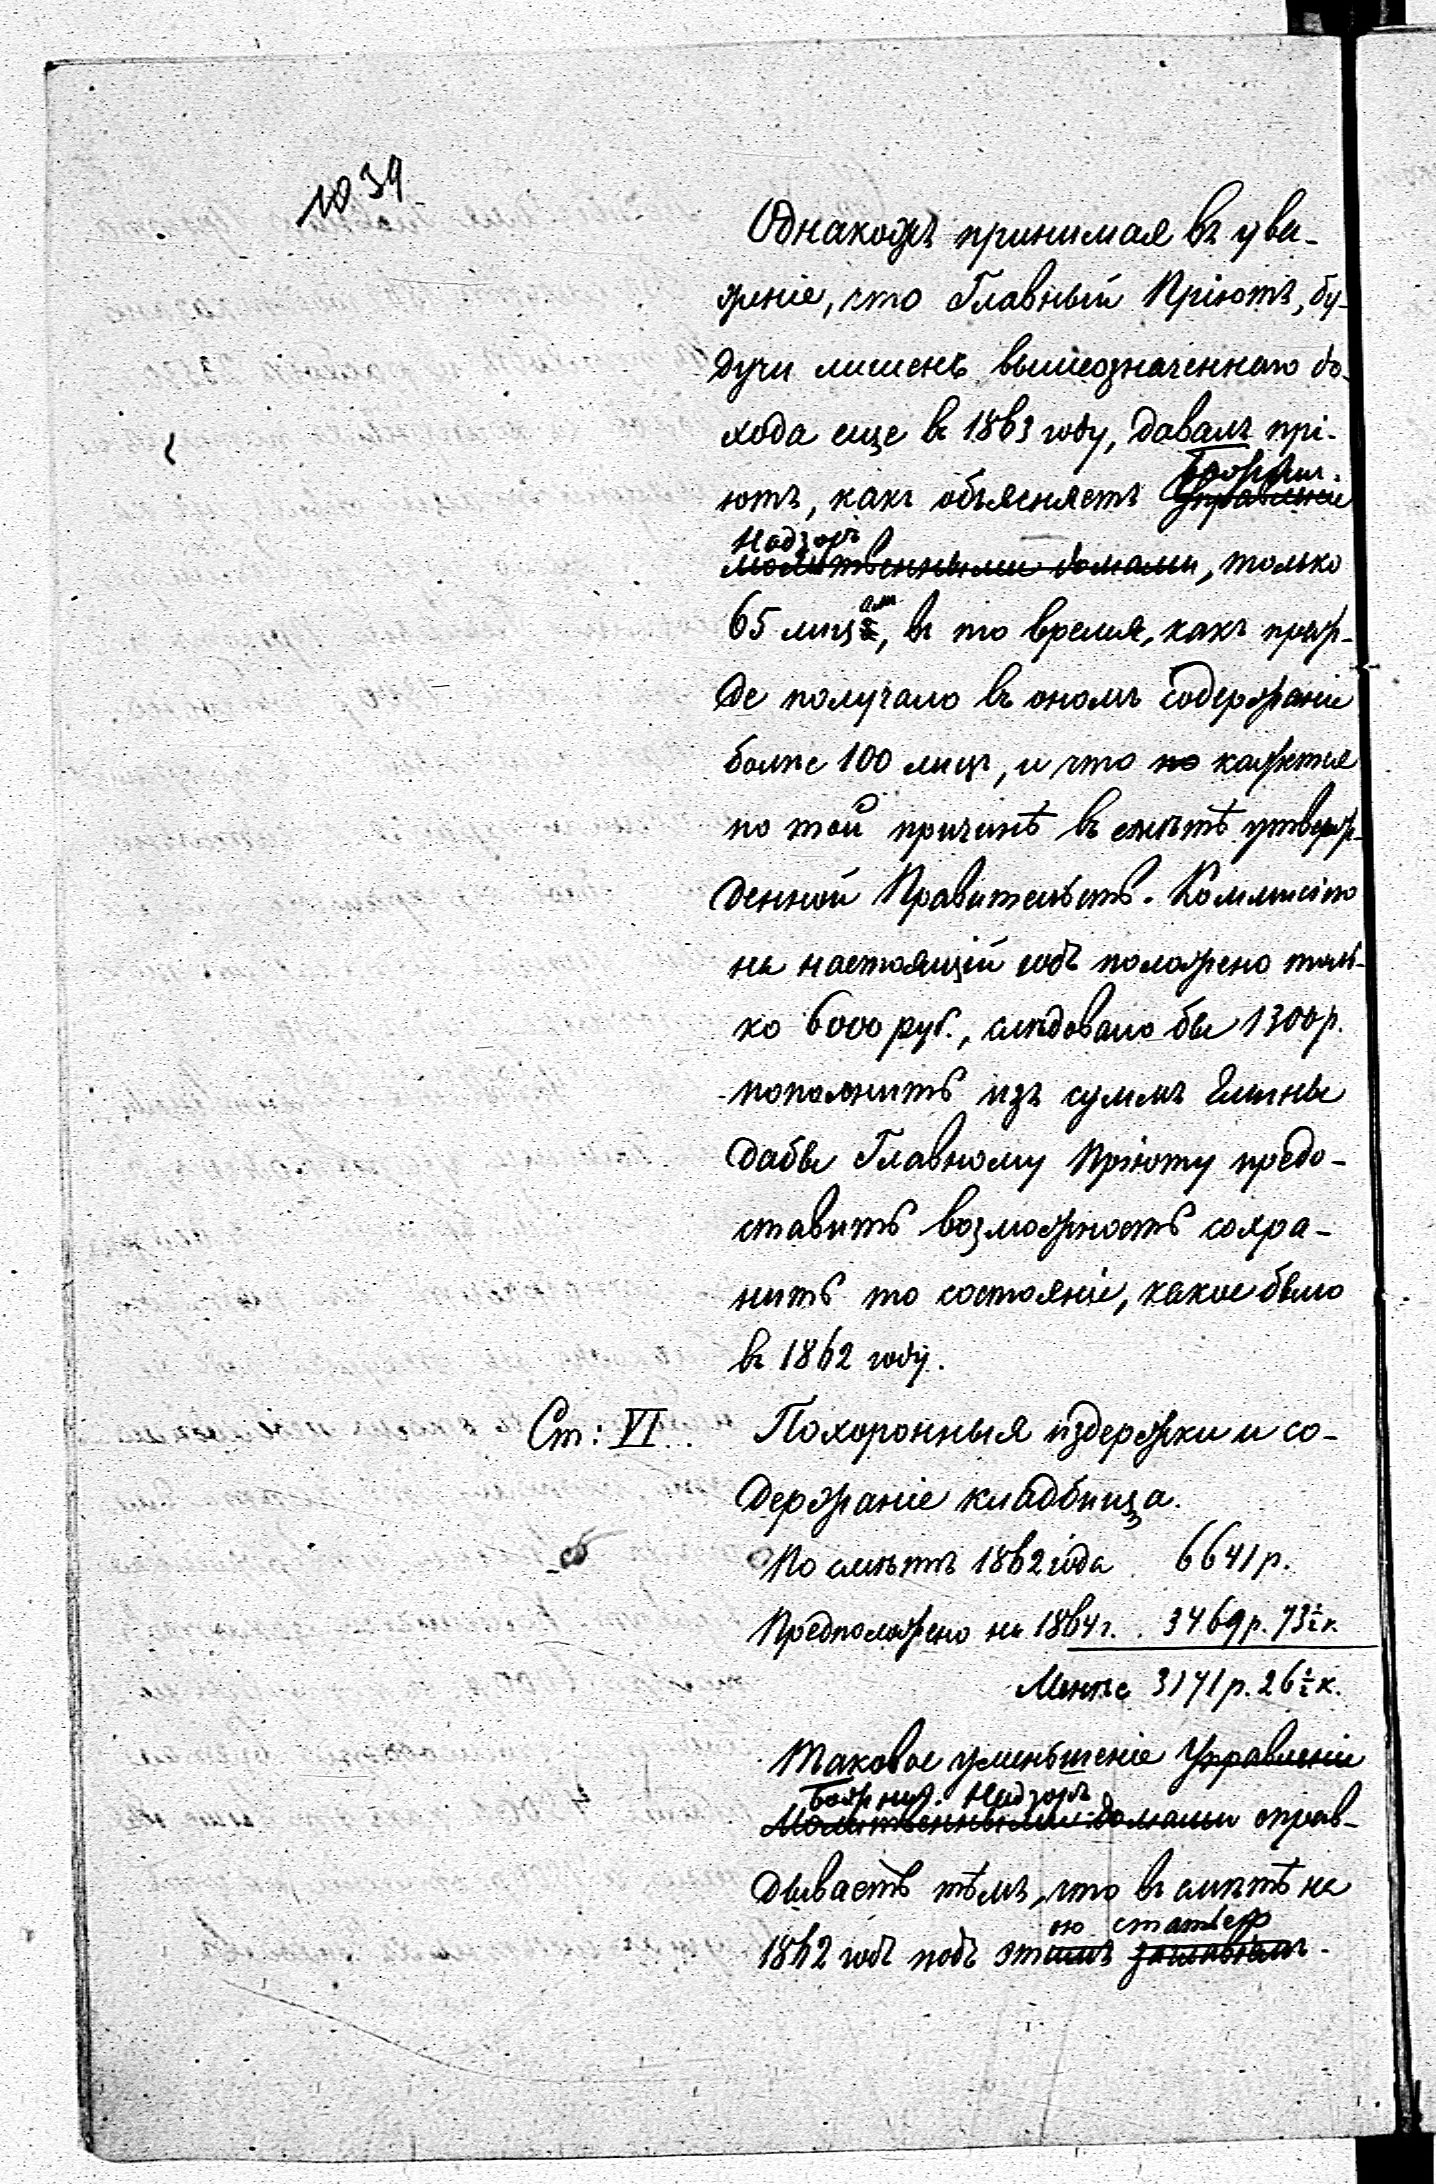 1039
Однакожъ принимая въ ува-
женіе, что Главный Пріютъ, бу-
дучи лишенъ вышеозначеннаго до-
хода еще въ 1863 году, давалъ прі-
ютъ, какъ объясняетъ Управленіе Божнич.
Молитвенными домами, только Надзоръ
65 лицамъ, въ то время, какъ преж-
де получало въ ономъ содержаніе
болѣе 100 лицъ, и что по кажется
по той причинѣ въ смѣтѣ утверж-
денной Правительств. Коммисіею
на настоящій годъ положено толь-
ко 6000 руб., слѣдовало бы 1300 р.
пополнить изъ суммъ Гмины
дабы Главному Пріюту предо-
ставить возможность сохра-
нить то состояніе, какое было
въ 1862 году.
Ст: VI. Похоронныя издержки и со-
держаніе кладбища.
По смѣтѣ 1862 года 6641 р.
Предположено на 1864 г. . 3469 р. 73½ к.
Менѣе 3171 р. 26½ к.
Таковое уменьшеніе Управленіе
Божнич. Надзоръ
Молитвенными домами оправ-
дываетъ тѣмъ, что въ смѣтѣ на
ою статьею
1862 годъ подъ этимъ заглавіемъ